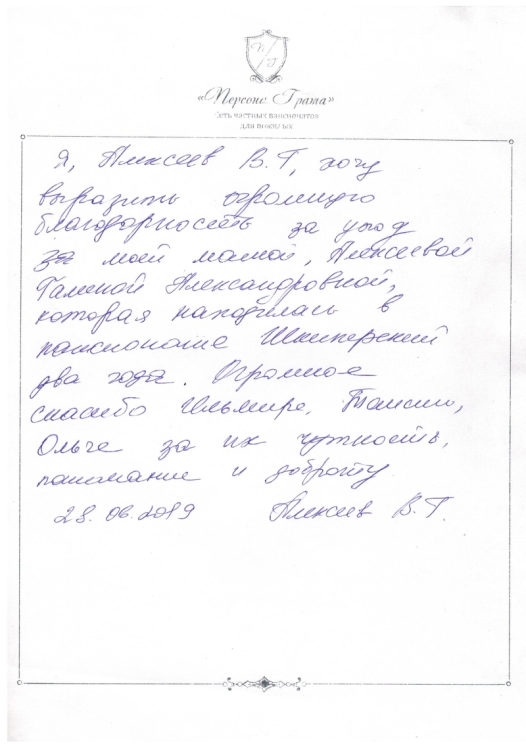 П Г
«Персона Грата»
Сеть частных пансионатов
для пожилых
Я, Алексеев В.Г, хочу
выразить огромную
благодарность за уход
за моей мамой, Алексеевой
Галиной Александровной,
которая находилась в
пансионате Шкиперский
два года. Огромное
спасибо Ильмире, Таисии,
Ольге за их чуткость,
понимание и доброту
28.06.2019 Алексеев В.Г.